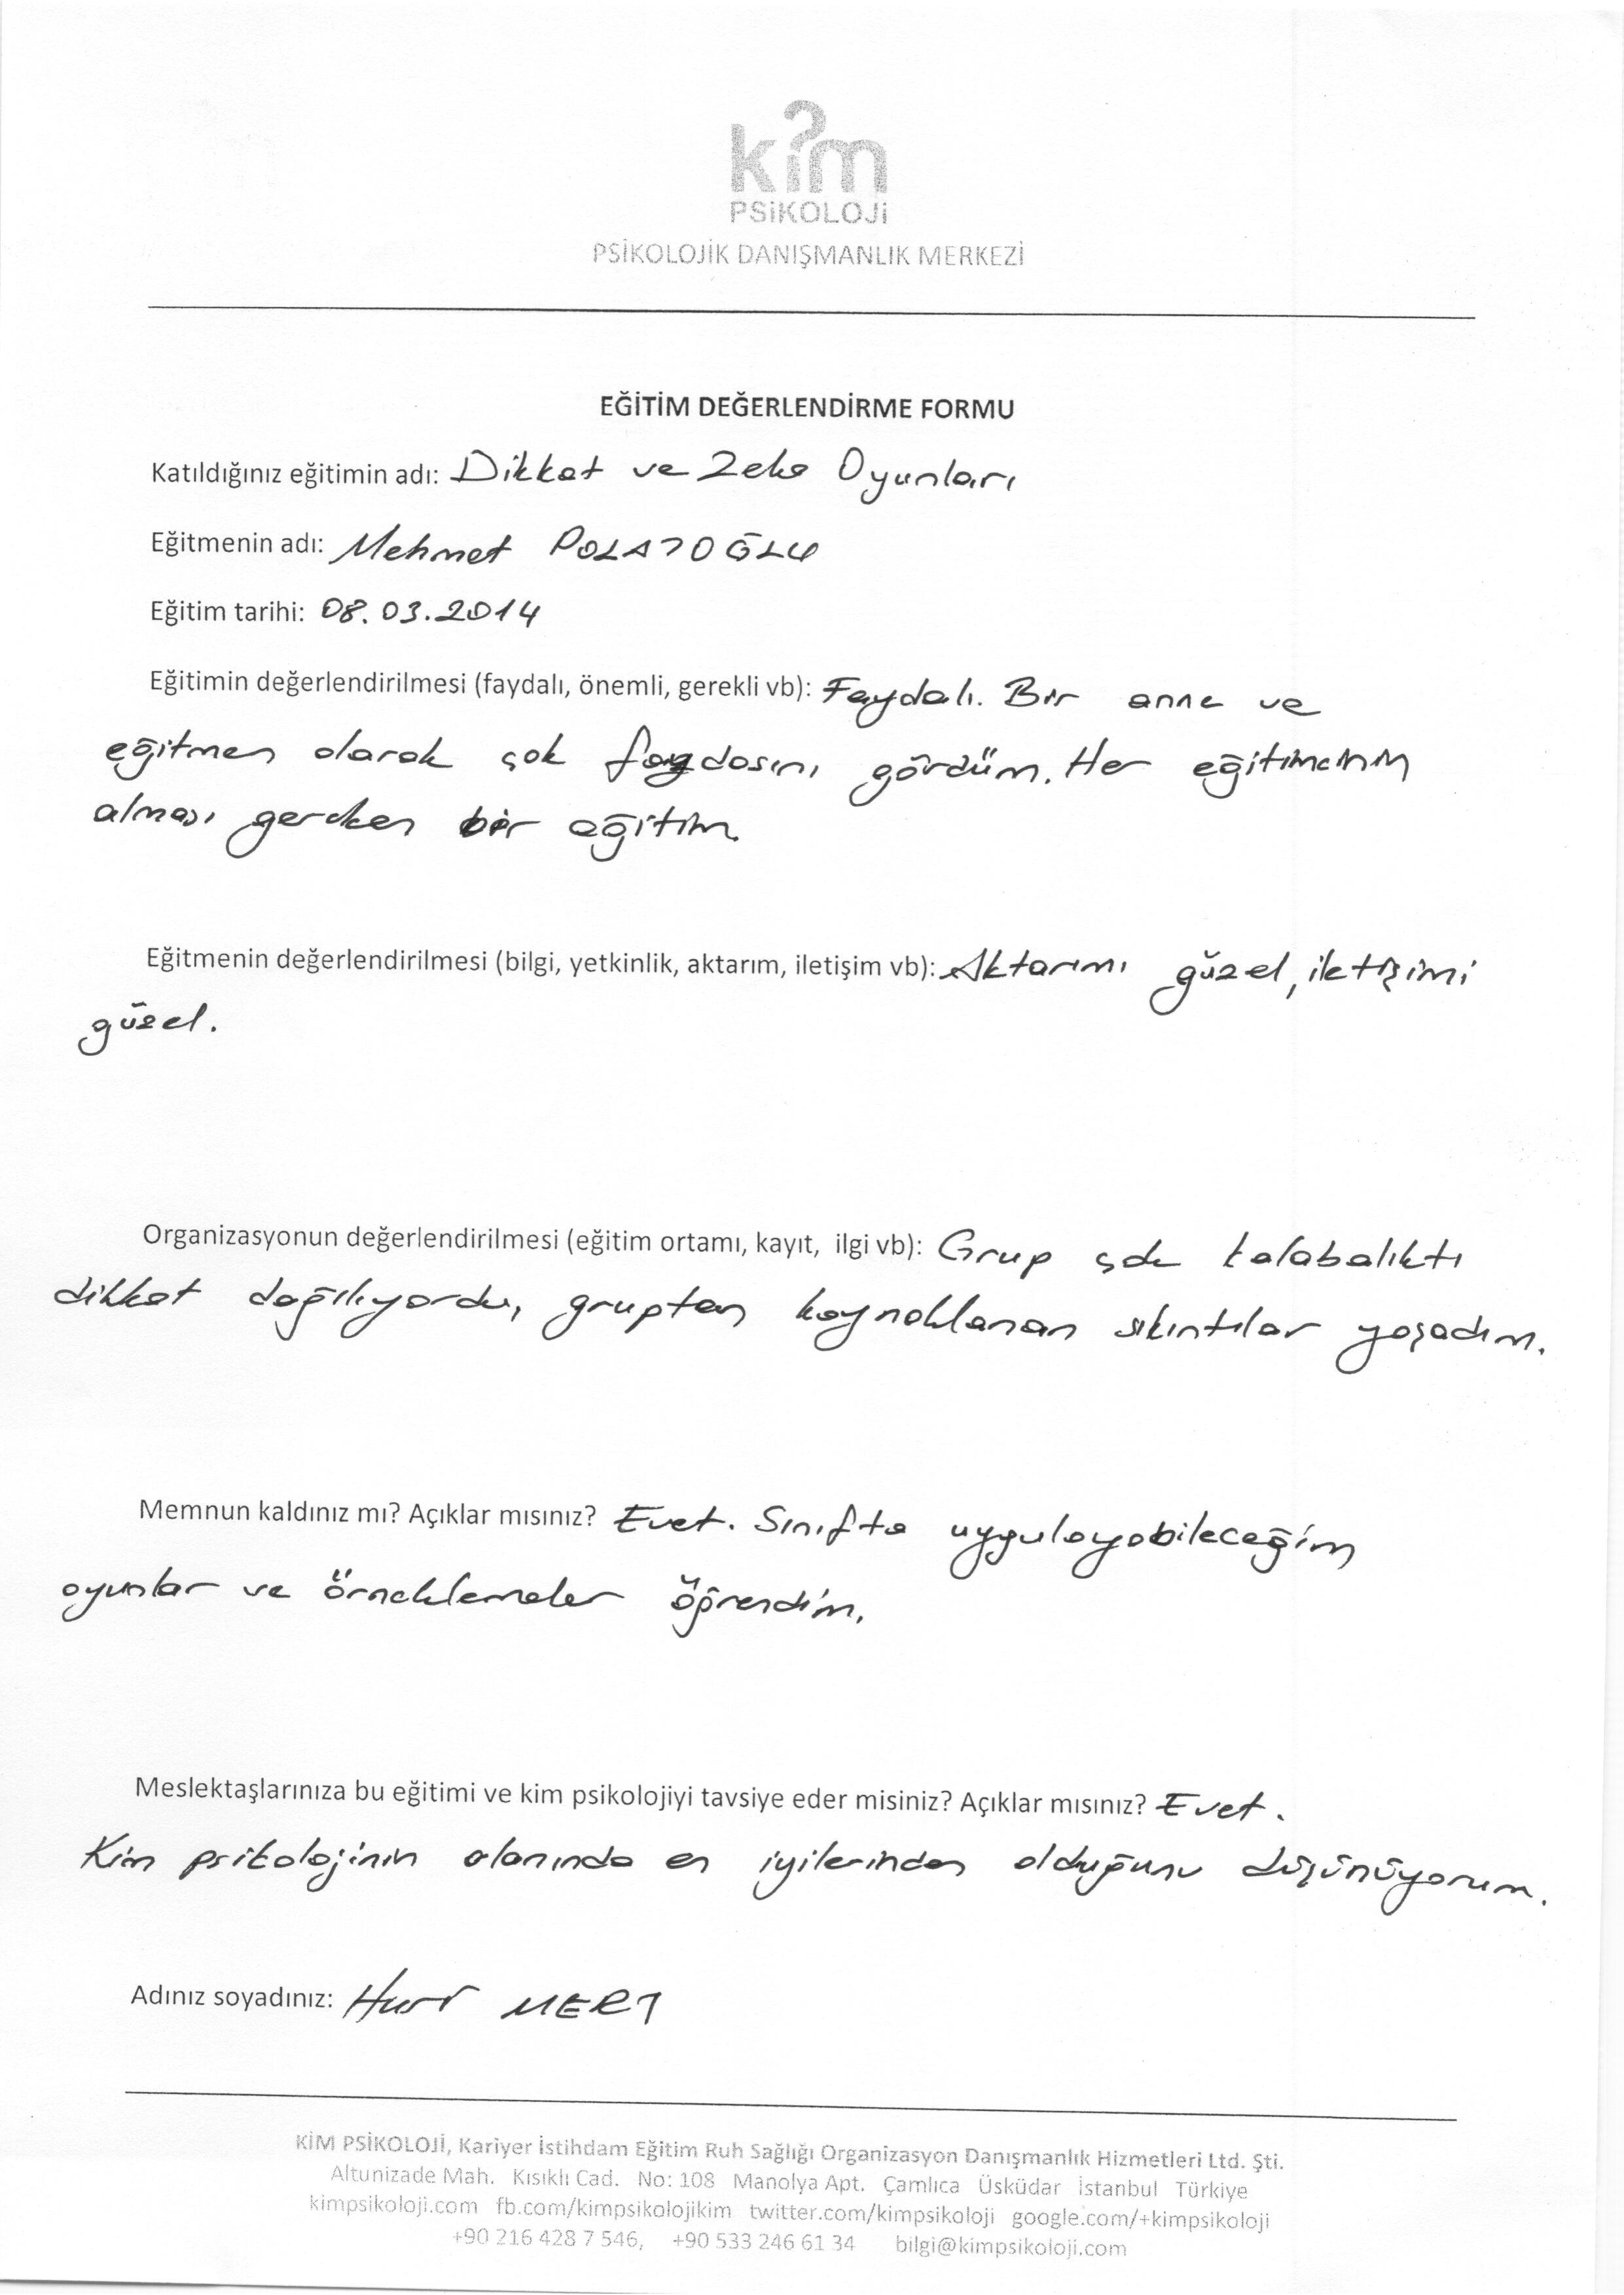 kim
PSİKOLOJİ
PSİKOLOJİK DANIŞMANLIK MERKEZİ
EĞİTİM DEĞERLENDİRME FORMU
Katıldığınız eğitimin adı: Dikkat ve Zeka Oyunları
Eğitmenin adı: Mehmet POLATOĞLU
Eğitim tarihi: 08.03.2014
Eğitimin değerlendirilmesi (faydalı, önemli, gerekli vb): Faydalı. Bir anne ve
eğitmen olarak çok faydasını gördüm. Her eğitimcinin
alması gereken bir eğitim.
Eğitmenin değerlendirilmesi (bilgi, yetkinlik, aktarım, iletişim vb): Aktarımı güzel, iletişimi
güzel.
Organizasyonun değerlendirilmesi (eğitim ortamı, kayıt, ilgi vb): Grup çok kalabalıktı
dikkat dağılıyordu, gruptan kaynaklanan sıkıntılar yaşadım.
Memnun kaldınız mı? Açıklar mısınız? Evet. Sınıfta uygulayabileceğim
oyunlar ve örneklemeler öğrendim.
Meslektaşlarınıza bu eğitimi ve kim psikolojiyi tavsiye eder misiniz? Açıklar mısınız? Evet.
Kim psikolojinin alanında en iyilerinden olduğunu düşünüyorum.
Adınız soyadınız: MERT
KİM PSİKOLOJİ, Kariyer İstihdam Eğitim Ruh Sağlığı Organizasyon Danışmanlık Hizmetleri Ltd. Şti.
Altunizade Mah. Kısıklı Cad. No: 108 Manolya Apt. Çamlıca Üsküdar İstanbul Türkiye
kimpsikoloji.com fb.com/kimpsikolojikim twitter.com/kimpsikoloji google.com/+kimpsikoloji
+90 216 428 7 546, +90 533 246 61 34 bilgi@kimpsikoloji.com